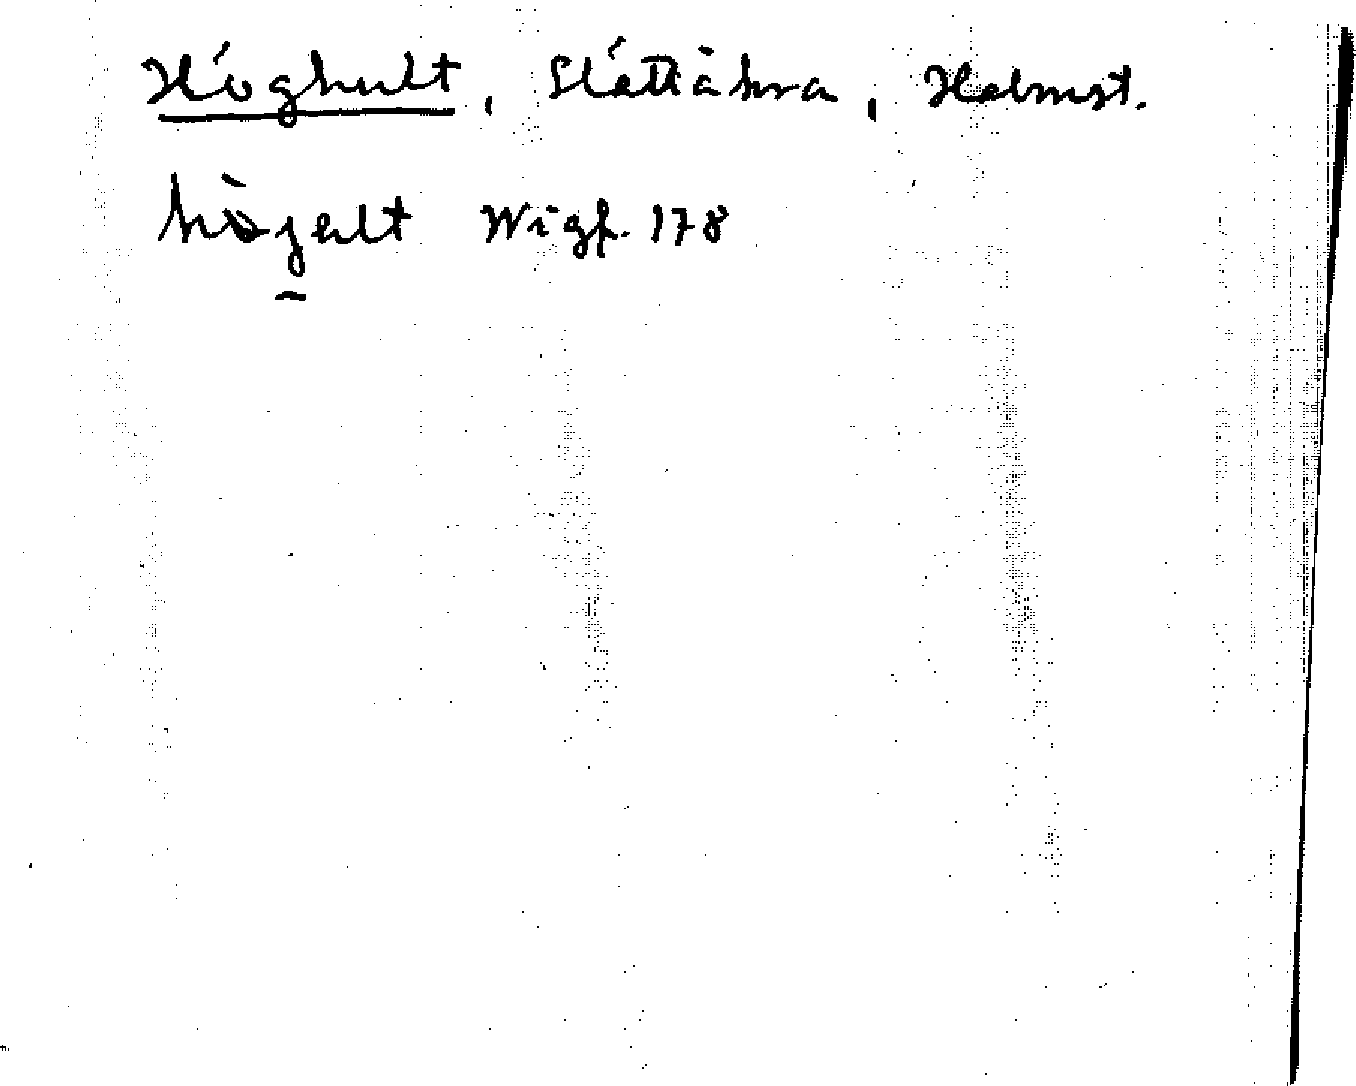 Höghult, Slättåkra, Halmst.
hö̀gält Wigf. 178